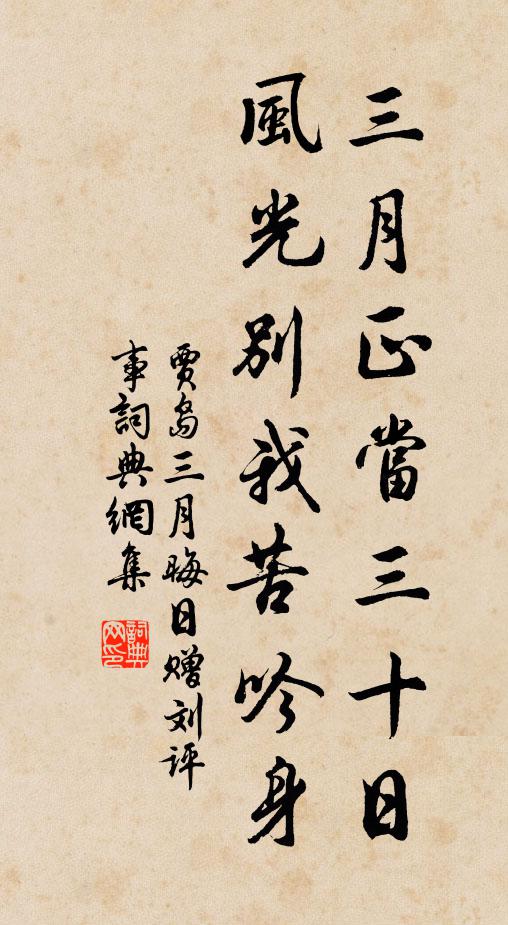 三月正當三十日
風光別我苦吟身
賈島三月晦日赠刘评
事詞典網集
詞典
网印